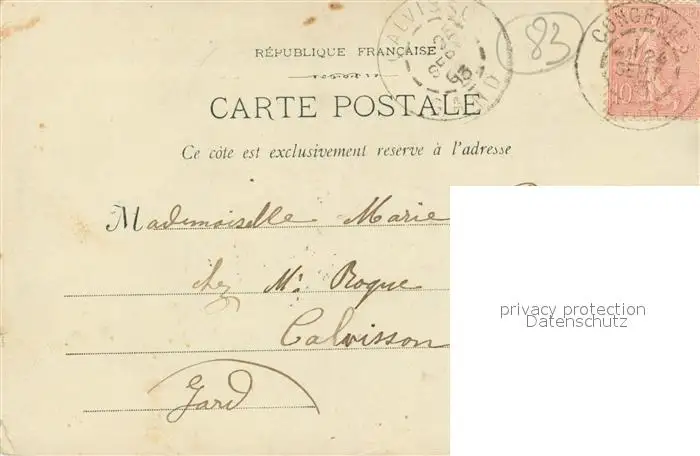 83
CONGENIES
RÉPUBLIQUE FRANÇAISE
10
CARTE POSTALE
Ce côte est exclusivement reserve à l'adresse
Mademoiselle Marie
chez Mr. Roque
Calvisson
Gard
privacy protection
Datenschutz